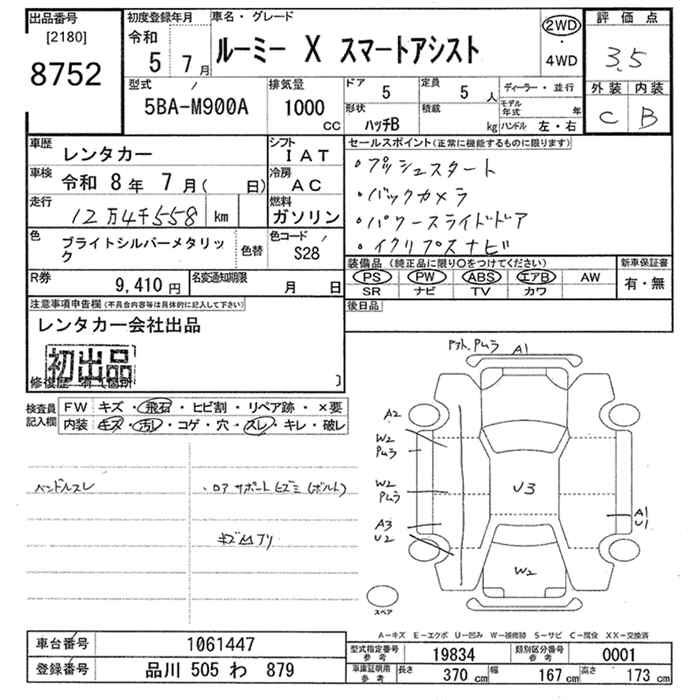 出品番号
[2180]
8752
初度登録年月
令和
5 7月
車名・グレード
ルーミー X スマートアシスト
2WD
・
4WD
評価点
3.5
外装 内装
C B
型式
5BA-M900A
排気量
1000
CC
ドア
5
定員
5人
形状
ハッチB
積載
kg
ディーラー・並行
モデル年式
年
ハンドル 左・右
車歴
レンタカー
シフト
IAT
車検
令和 8年 7月( 日)
冷房
AC
走行
12万4千558 km
燃料
ガソリン
色
ブライトシルバーメタリック
色替
色コード
S28
R券
9,410円
名変通知期限
月 日
セールスポイント(正常に機能するものに限ります)
・プッシュスタート
・バックカメラ
・パワースライドドア
・イクリプスナビ
装備品(純正品に限り○をつけてください)
PS PW ABS エアB AW
SR ナビ TV カワ
新車保証書
有・無
後日品
注意事項申告欄(不具合内容等は具体的に記入して下さい)
レンタカー会社出品
初出品
修復歴
検査員記入欄
FW キズ・飛石・ヒビ割・リペア跡・×要
内装 キズ・汚レ・コゲ・穴・スレ・キレ・破レ
ハンドルスレ
・ロアサポートヒズミ(ボルト)
A1
A2
W2
ムラ
W2
ムラ
A3
U2
U3
A1
U1
W2
スペア
A-キズ E-エクボ U-凹み W-補修跡 S-サビ C-腐食 XX-交換済
車台番号
1061447
登録番号
品川 505 わ 879
型式指定番号
参考
19834
類別区分番号
参考
0001
車庫証明用
参考
長さ
370 cm
幅
167 cm
高さ
173 cm